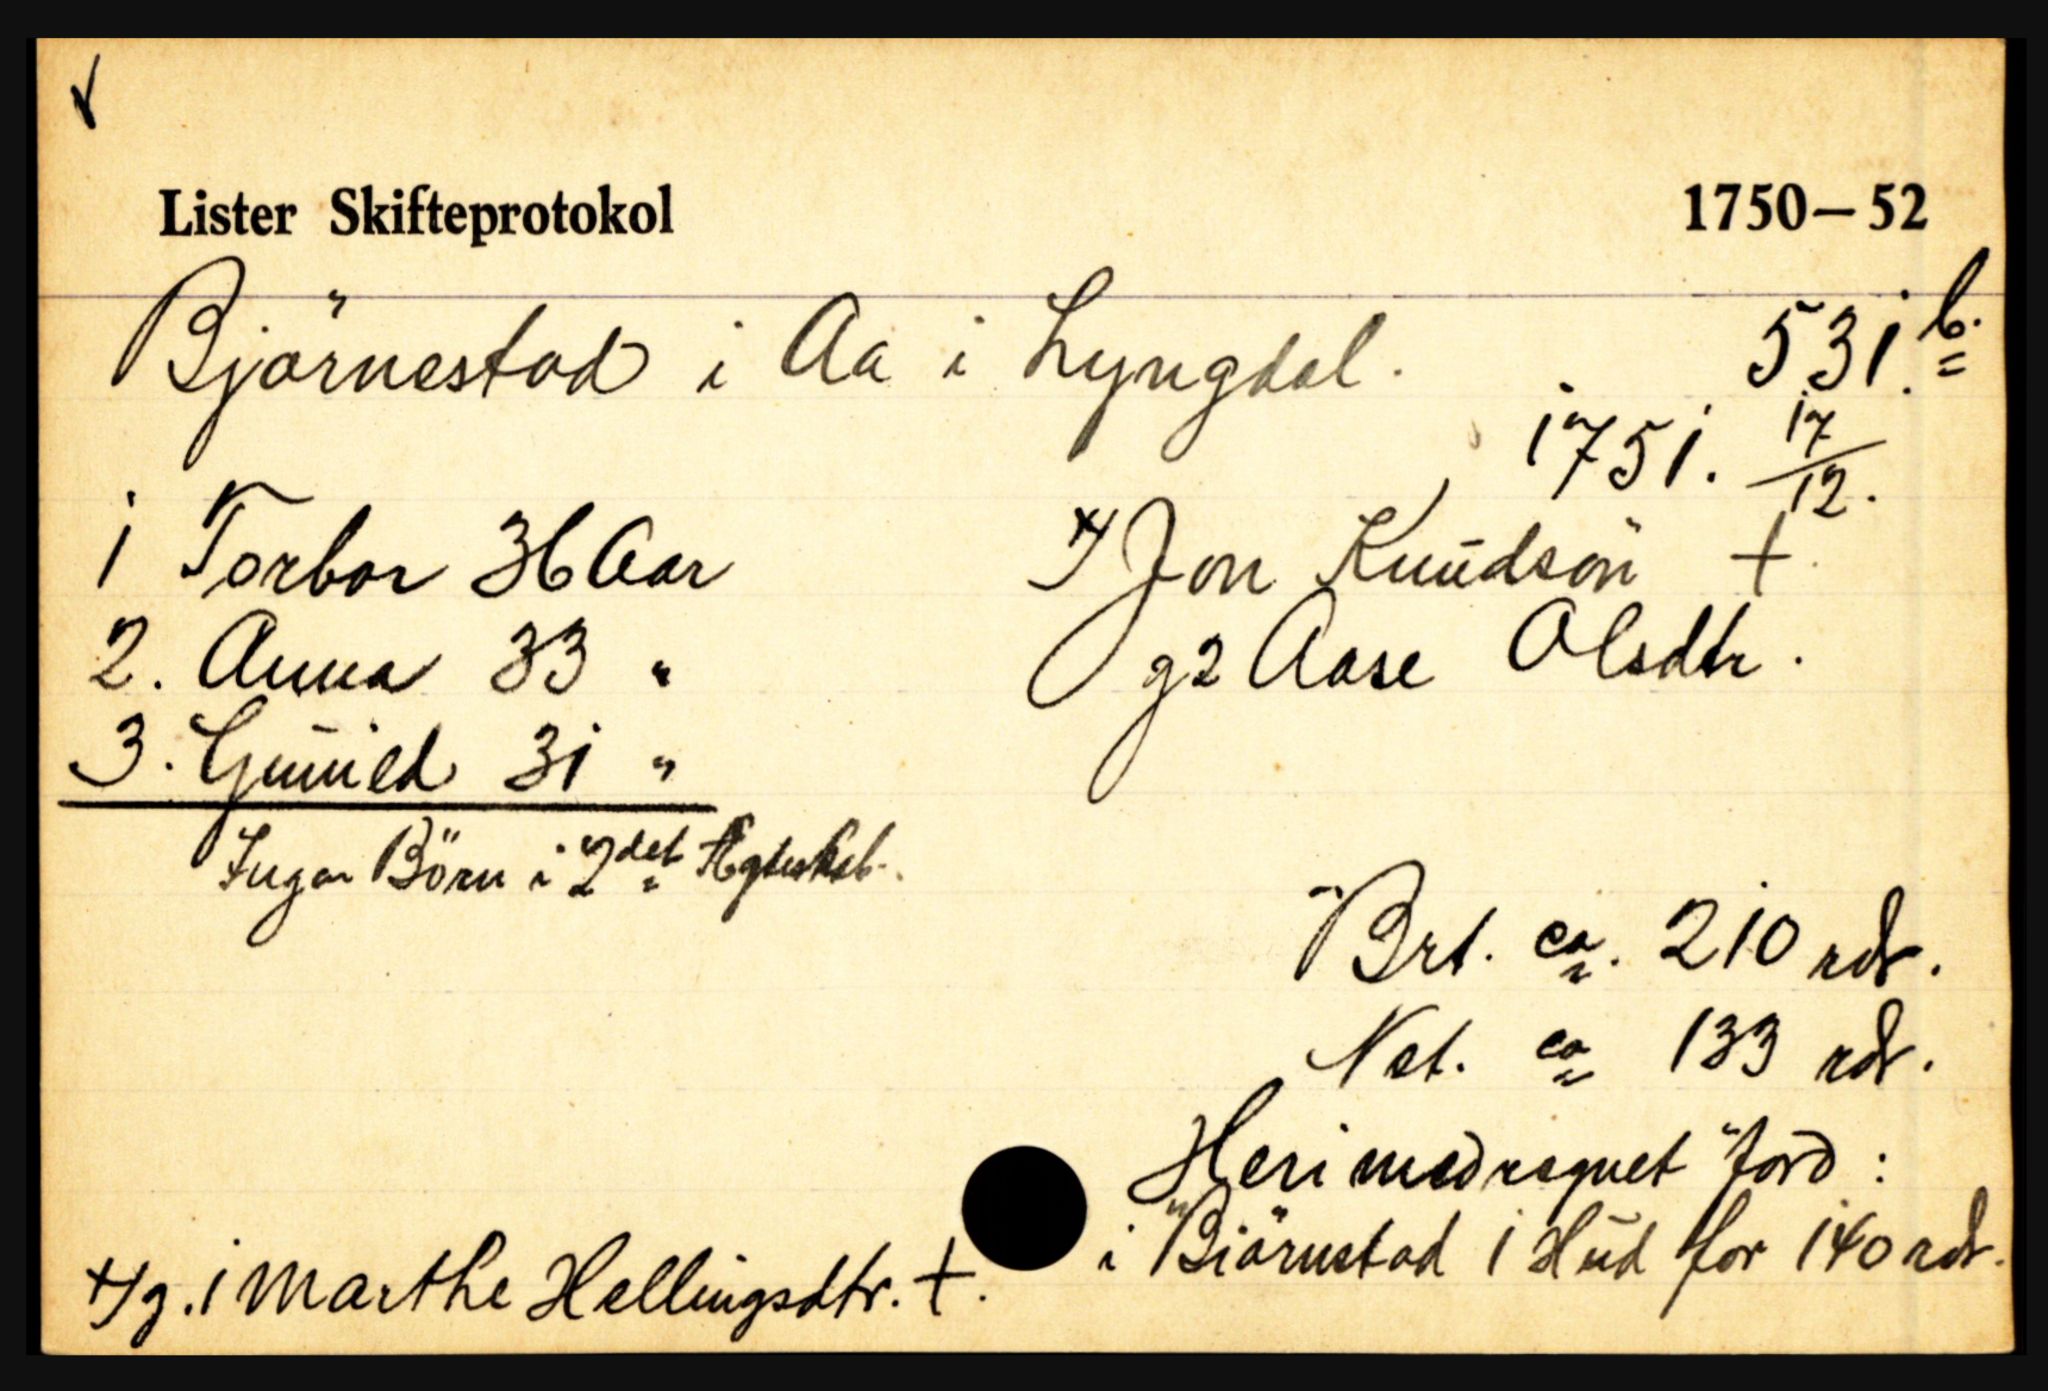 Lister Skifteprotokol 1750–52
Björnestad i Aa i Lyngdal. 531.b.
1751. 17/12.
1 Torbor 36 Aar
x/ Jon Knudsön +
2. Anna 33 "
g2 Aase Olsdtr.
3. Gunild 31 "
Ingen Börn i 2det Ægteskab.
Brt. ca. 210 rdr.
Net. ca 133 rdr.
Heri medregnet jord:
i Biörnestad 1 Hud for 140 rdr.
x/ g. 1 Marthe Hellingsdtr. +.